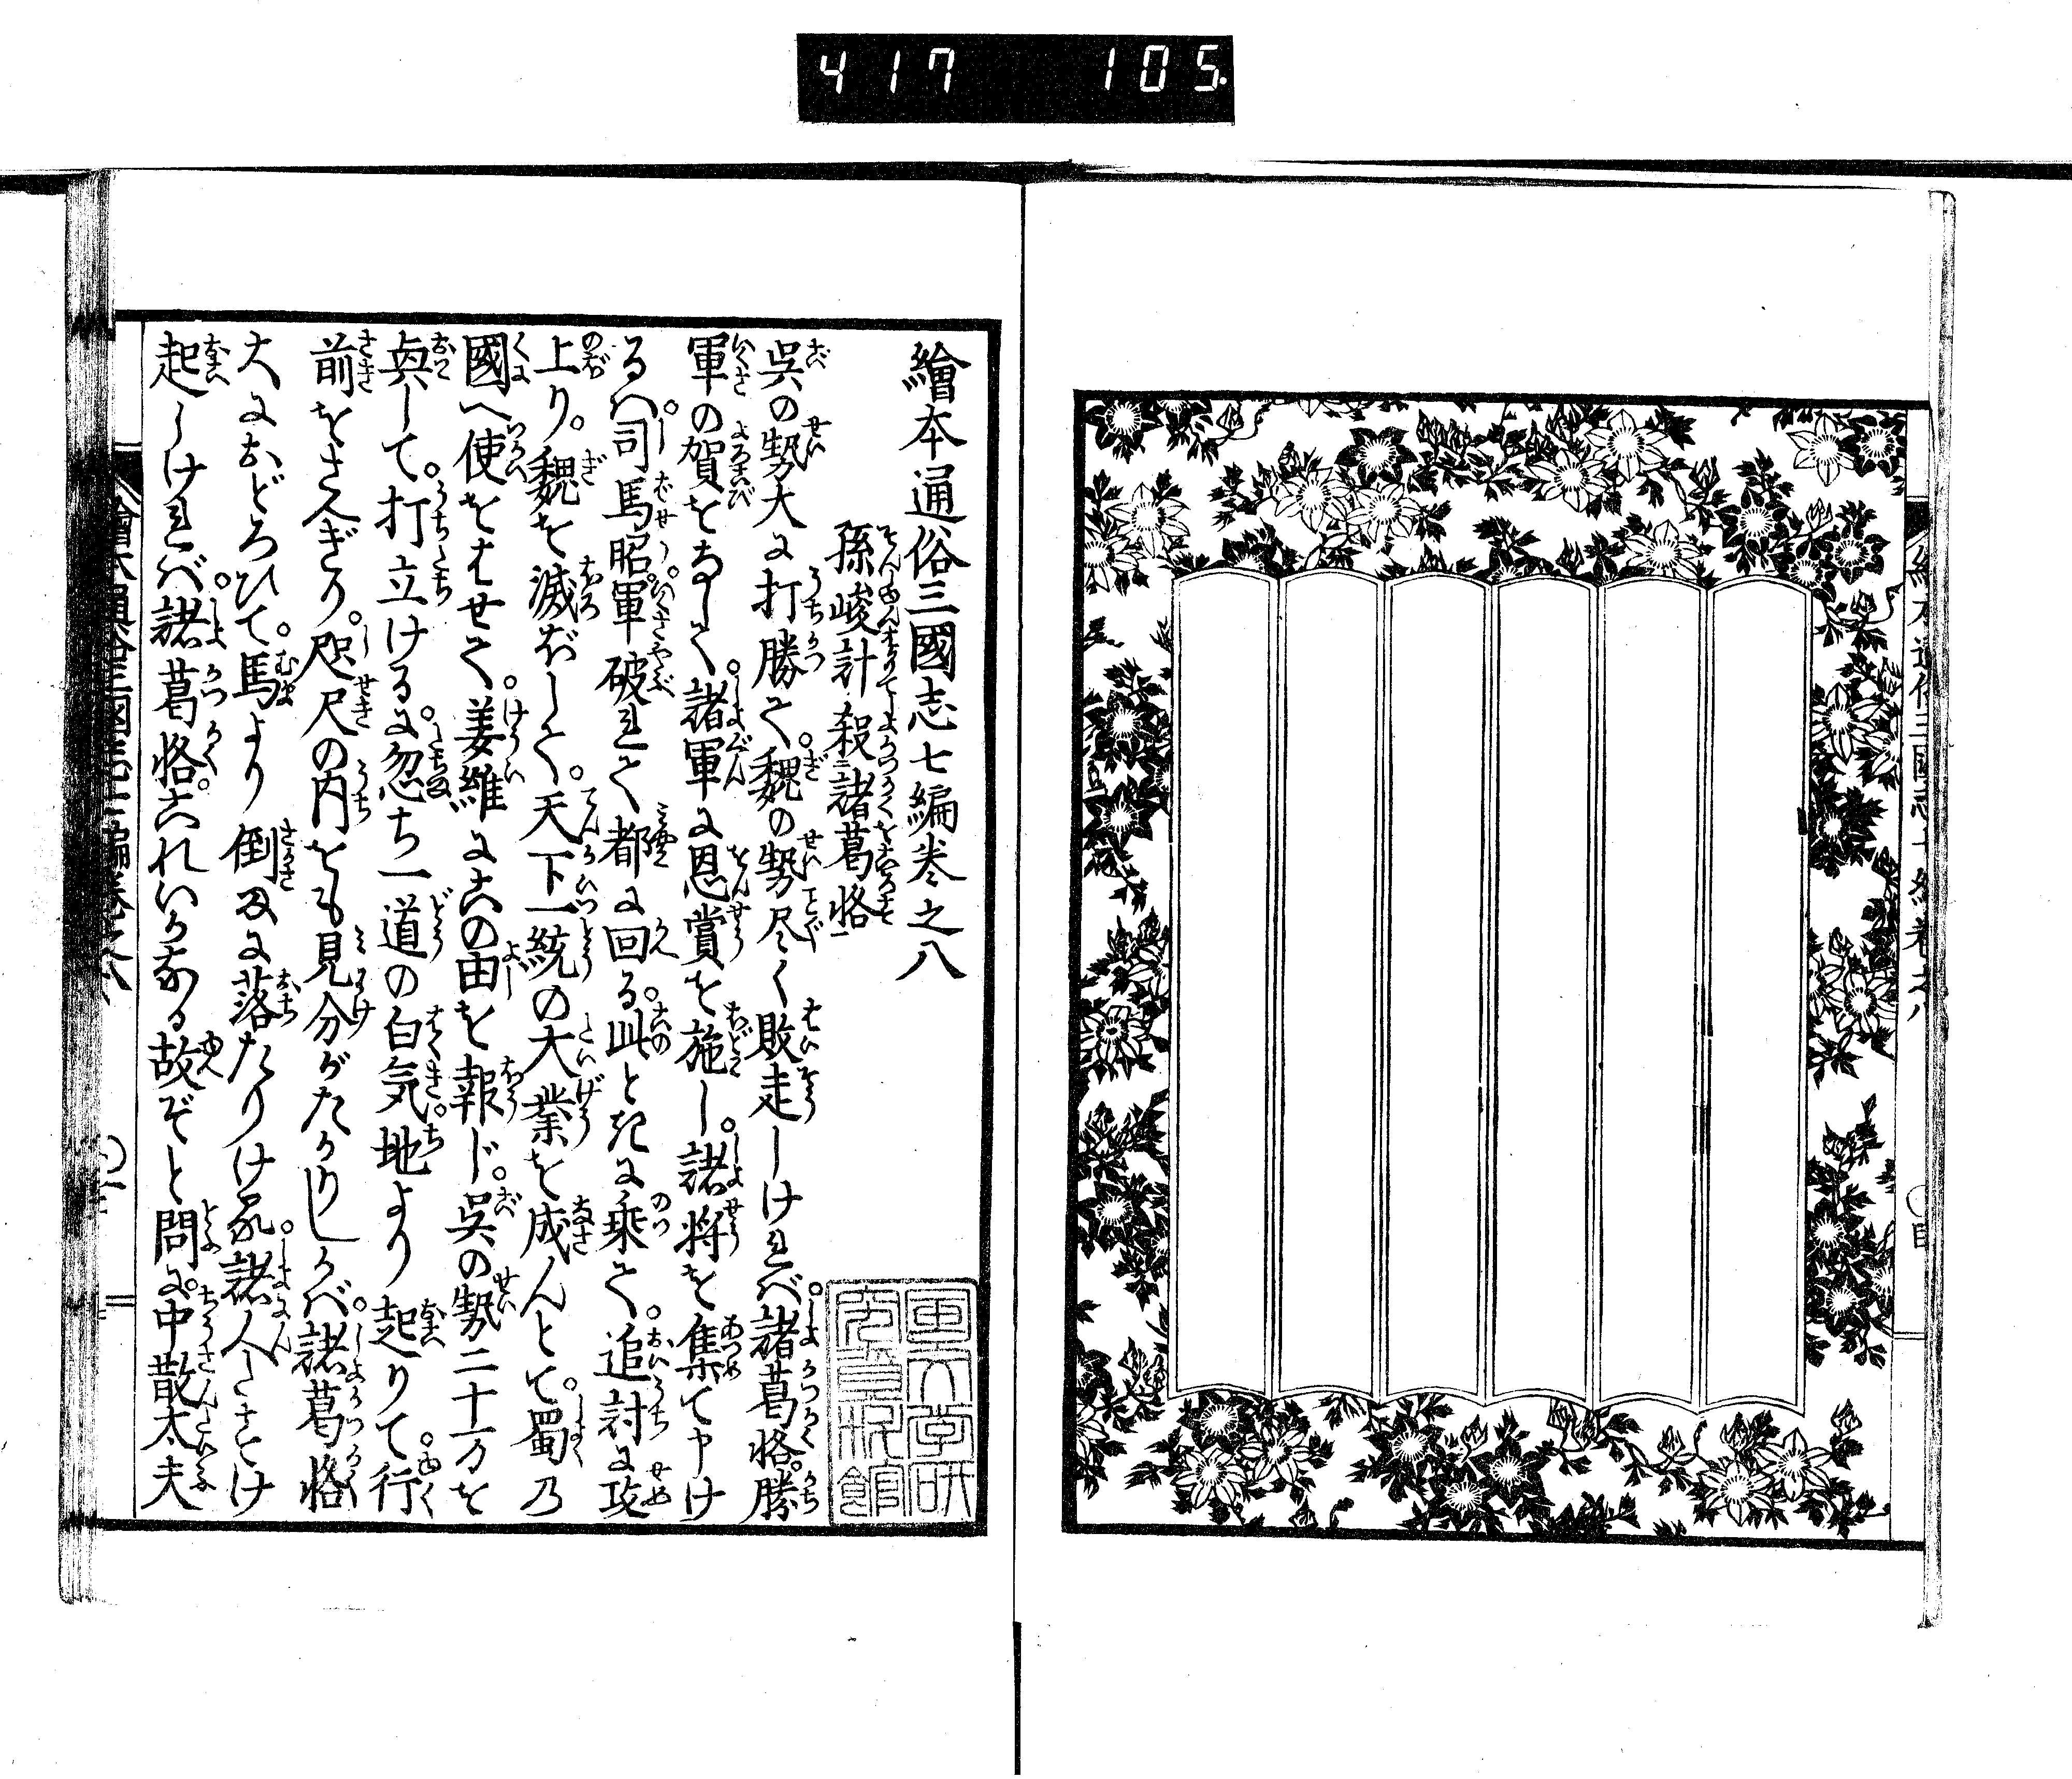 417 105.
繪本通俗三國志七編巻之八
孫峻計殺諸葛恪
呉の勢大に打勝て。魏の勢尽く敗走しければ。諸葛恪。勝
軍の賀をなして。諸軍に恩賞を施し。諸将を集て申け
るハ。司馬昭。軍破れて都に回る。此ときに乗て。追討に攻
上り。魏を滅ぼして。天下一統の大業を成んとて。蜀乃
國へ使をはせて。姜維に此の由を報ド。呉の勢二十万を
興して。打立ける に。忽ち一道の白気。地より起りて。行
前をさえぎり。咫尺の内をも見分がたかりしかバ。諸葛恪
大におどろひて。馬より倒に落たりけれバ。諸人たすけ
起しけれバ。諸葛恪。これいかなる故ぞと問に。中散太夫